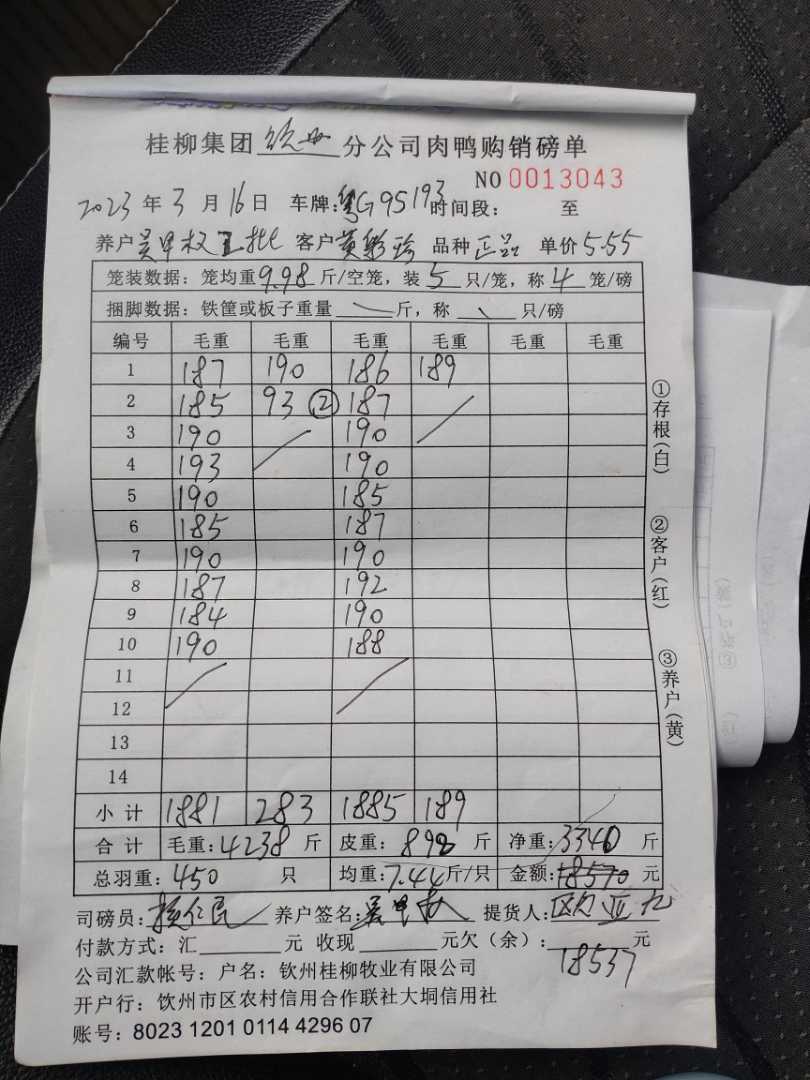 桂柳集团 钦州 分公司肉鸭购销磅单
NO 0013043
2023 年 3 月 16 日 车牌:粤G95193 时间段: 至
养户 吴甲权 批 客户 黄彩珍 品种 正品 单价 5.55
笼装数据:笼均重 9.98 斤/空笼,装 5 只/笼,称 4 笼/磅
捆脚数据:铁筐或板子重量 斤,称 只/磅
编号 毛重 毛重 毛重 毛重 毛重 毛重
1 187 190 186 189
2 185 93 ② 187
3 190 190
4 193 190
5 190 185
6 185 187
7 190 190
8 187 192
9 184 190
10 190 188
11
12
13
14
小计 1881 283 1885 189
合计 毛重:4238 斤 皮重:898 斤 净重:3340 斤
总羽重:450 只 均重:7.44 斤/只 金额:18570 元
司磅员: 养户签名: 提货人:欧亚九
付款方式:汇 元 收现 元欠(余): 元
18537
公司汇款帐号:户名:钦州桂柳牧业有限公司
开户行:钦州市区农村信用合作联社大垌信用社
账号:8023 1201 0114 4296 07
①存根(白)
②客户(红)
③养户(黄)